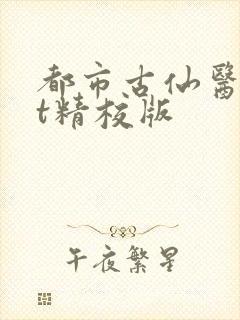 都市古仙醫
t精校版
午夜繁星